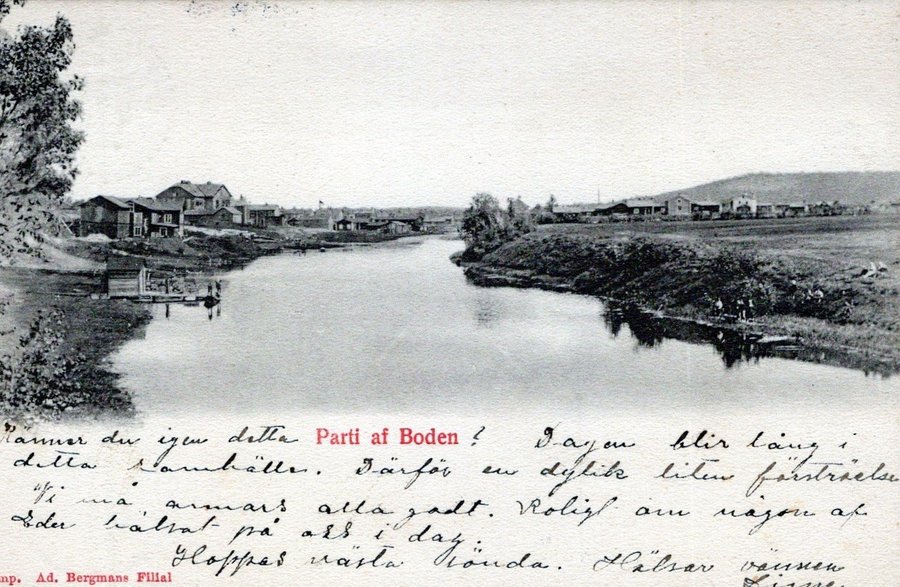 Känner du igen detta Parti af Boden? Dagen blir lång i
detta samhälle. Därför en dylik liten förströelse
Vi må annars alla godt. Roligt om någon af
Eder hälsat på oss i dag.
Hoppas nästa sönda. Hälsar vännen
mp. Ad. Bergmans Filial